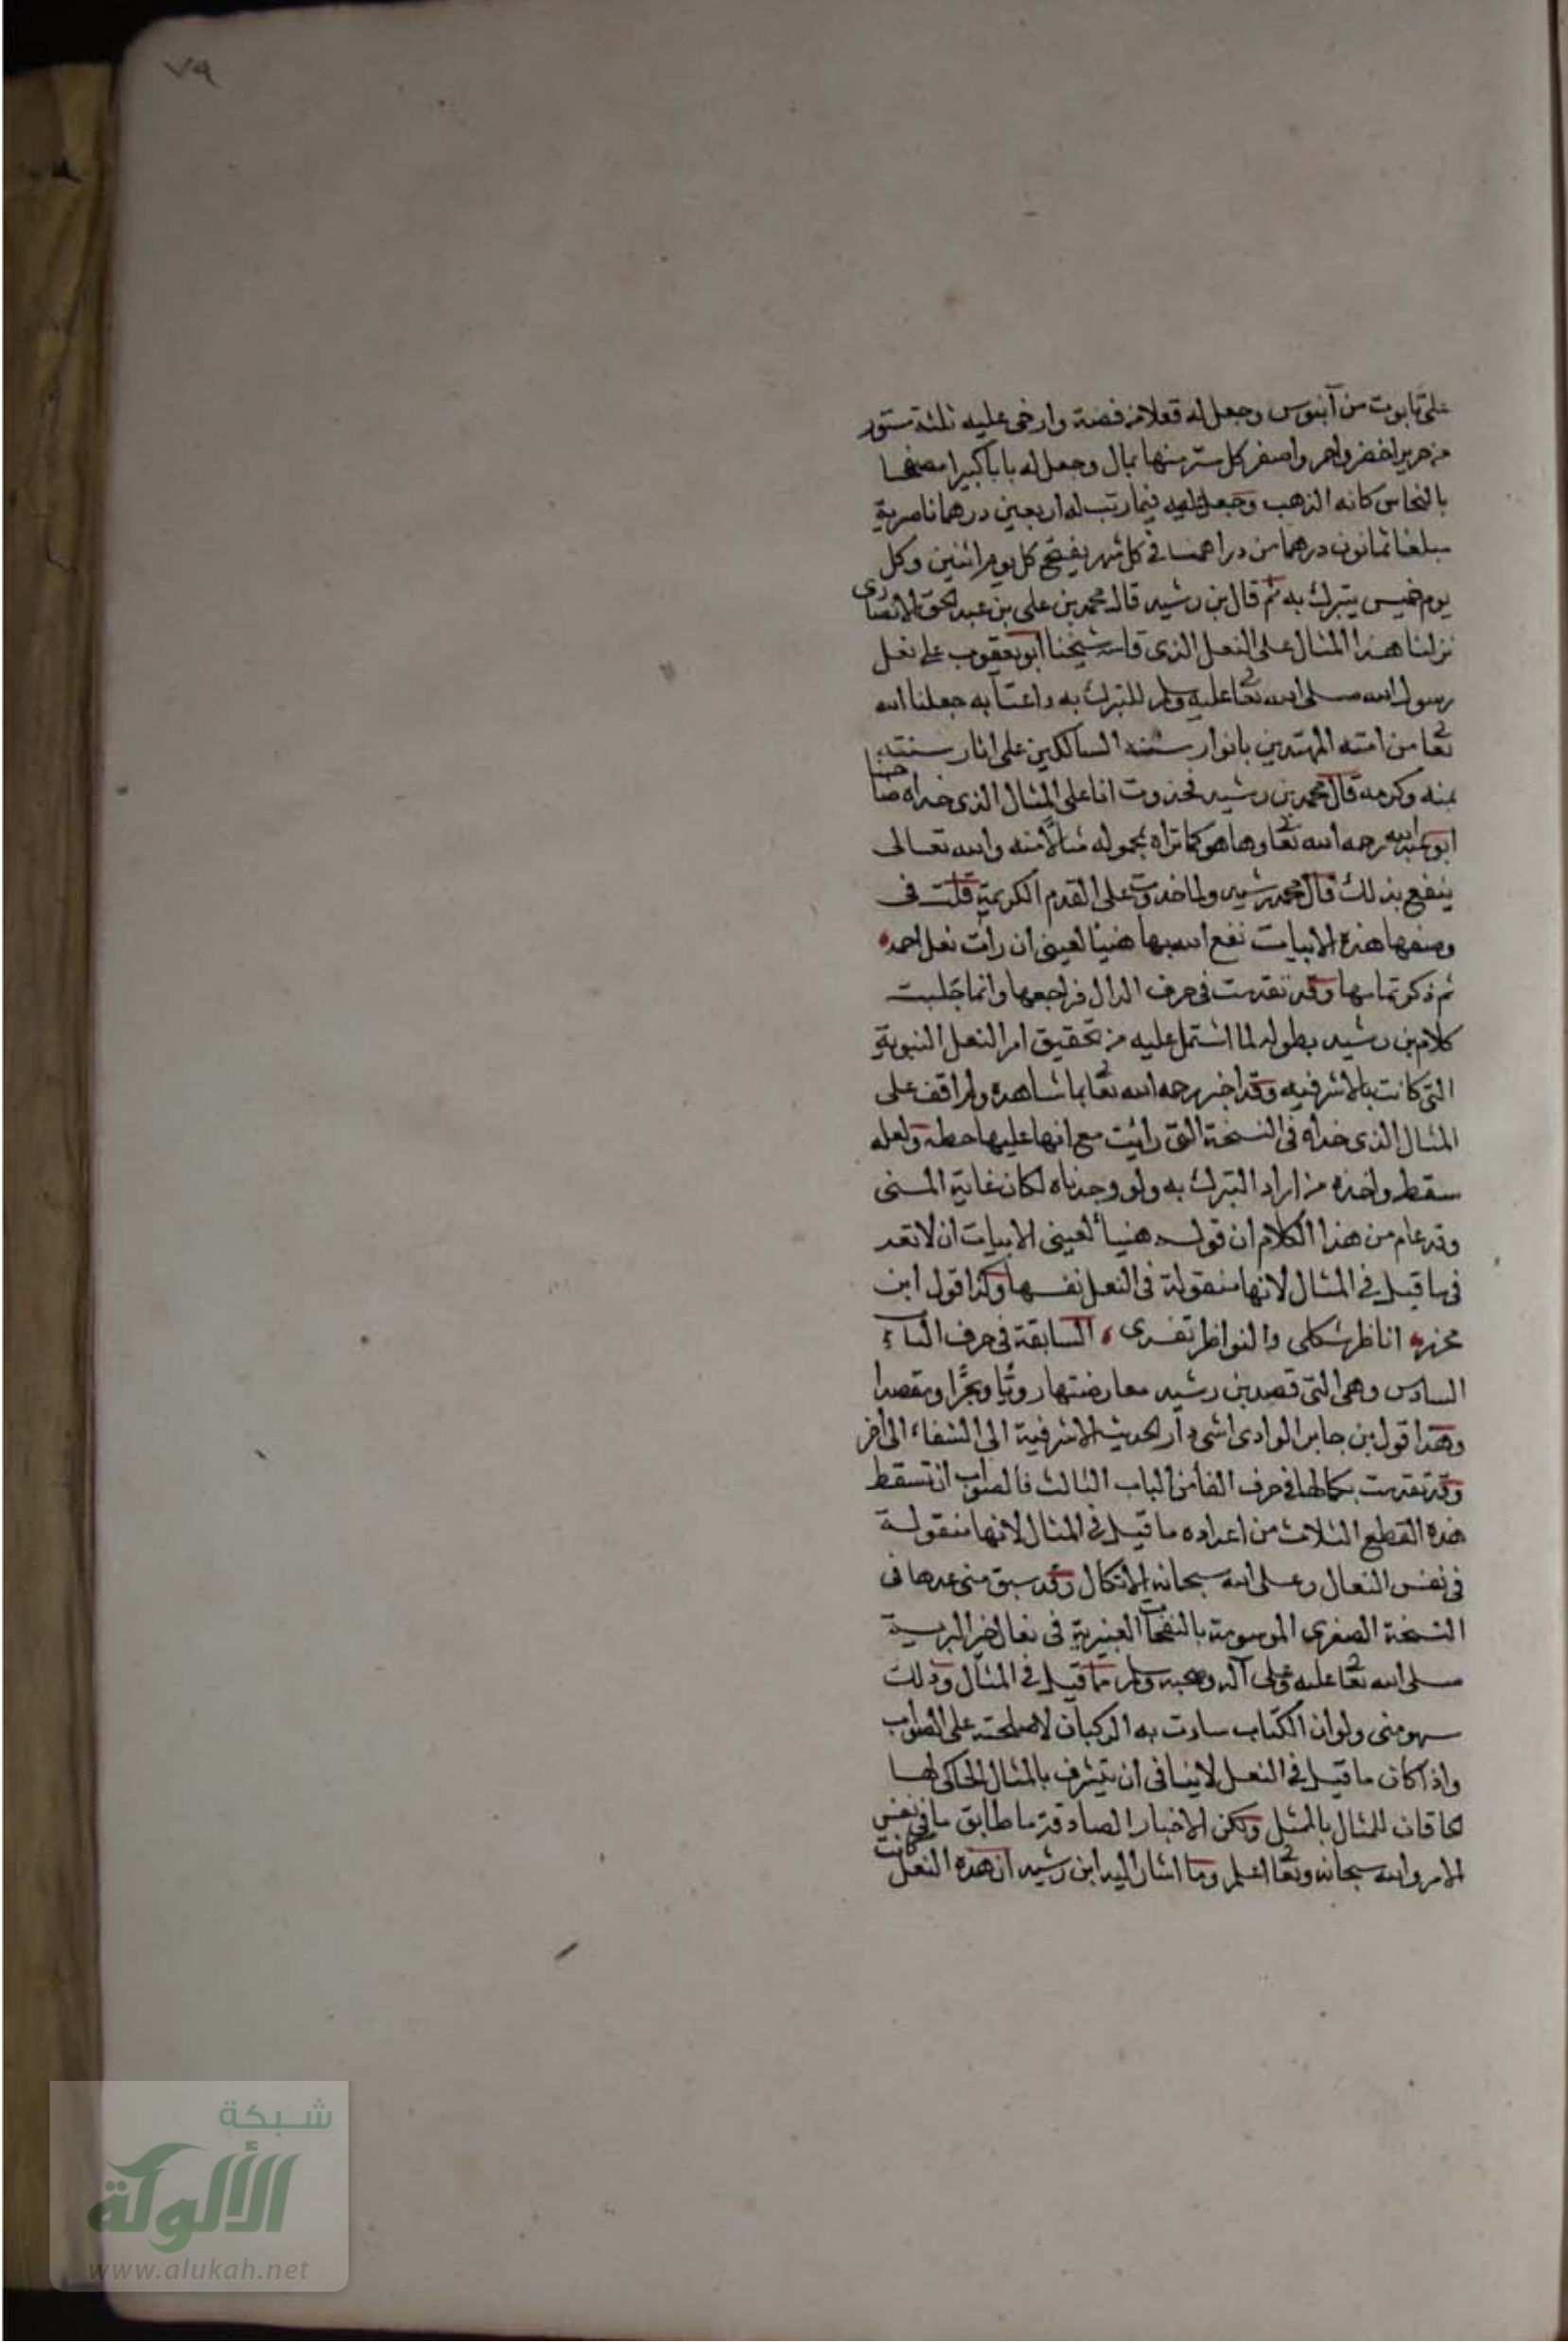 ٧٩
على تابوت من آبنوس وجعل له قفلا من فضة وارخى عليه ثلثة ستور
من حرير اخضر واحمر واصفر كل ستر منها بمال وجعل له بابا كبيرا مصفحا
بالنحاس كانه الذهب وجعل فيما رتب له اربعين درهما ناصرية
مبلغا ثمانون درهما من دراهمنا في كل شهر يفتح كل يوم اثنين وكل
يوم خميس يتبرك به ثم قال بن رشيد قال محمد بن على بن عبد الحق الانصارى
نزلنا هذا المثال على النعل الذى قاسه شيخنا ابو يعقوب على نعل
رسول الله صلى الله تعا عليه وسلم للتبرك به جعلنا الله
تعا من امته المهتدين بانوار سنته السالكين على اثار سنته
بمنه وكرمه قال محمد بن رشيد فحذوت انا على المثال الذى حذاه صاحبنا
ابو عبد الله رحمه الله تعا وها هو كما تراه مثالا منه والله تعالى
ينفع بذلك قال محمد بن رشيد ولما حذوت على القدم الكريمة قلت في
وصفها هذه الابيات نفع الله بها هنيئا لعينى ان رات نعل احمد
ثم ذكر تمامها وقد تقدمت في حرف الدال فراجعها وانما جلبت
كلام بن رشيد بطوله لما اشتمل عليه من تحقيق امر النعل النبوية
التى كانت بالاشرفيه وقد اخبر رحمه الله تعا بما شاهده ولم اقف على
المثال الذى حذاه في النسخة التى رايت مع انها عليها خطه ولعله
سقط واخذه من اراد التبرك به ولو وجدناه لكان غاية المنى
وقد علم من هذا الكلام ان قوله هنيأ لعينى الابيات ان لا تعد
فيما قيل في المثال لانها منقولة في النعل نفسها وكذا قول ابن
محرز اناظر شكلى والنواظر تفدى السابقة في حرف التاء
السادس وهى التى قصد بن رشيد معارضتها رويا وبحرا ومقصدا
وهذا قول بن جابر الوادى اشى دار الحديث الاشرفية الى الشفاء الى اخر
وقد تقدمت بكمالها في حرف الفا من الباب الثالث فالصواب ان تسقط
هذه القطع الثلاث من اعداده ما قيل في المثال لانها منقولة
في نفس النعال وعلى الله سبحانه الاتكال وقد سبق منى عدها في
النسخة الصغرى الموسومة بالنفحات العنبرية في نعال خير البرية
صلى الله تعا عليه وعلى آله وصحبه وسلم مما قيل في المثال وذلك
سهو منى ولو ان الكتاب سارت به الركبان لاصلحته على الصواب
واذا كان ما قيل في النعل لا ينافى ان يتشرف بالمثال الحاكى لها
للمثال بالمثل ولكن الاخبار الصادقة ما طابق ما في نفس
الامر والله سبحانه وتعا اعلم وما اشار اليه ابن رشيد ان هذه النعل كانت
شبكة
الألوكة
www.alukah.net